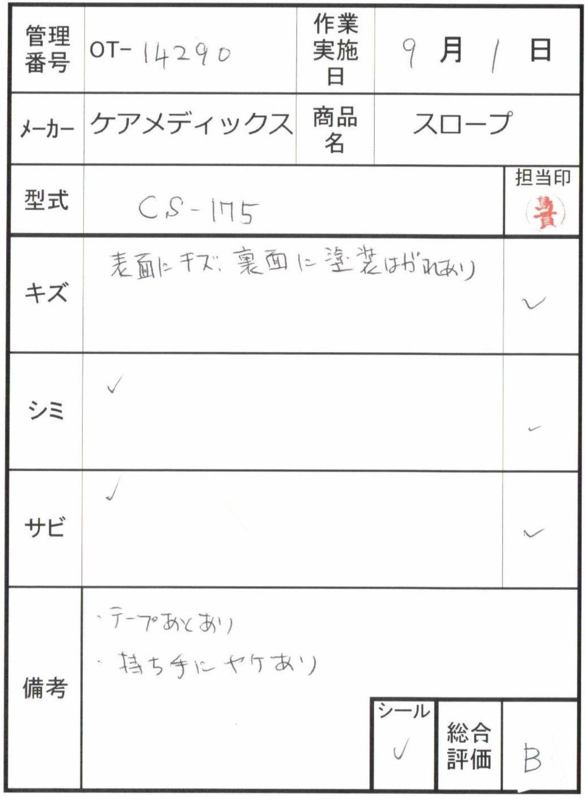 管理番号 OT-14290 作業実施日 9月1日
メーカー ケアメディックス 商品名 スロープ
型式 CS-175 担当印
キズ 表面にキズ、裏面に塗装はがれあり ✓
シミ ✓ ✓
サビ ✓ ✓
備考
・テープあとあり
・持ち手にヤケあり
シール ✓ 総合評価 B